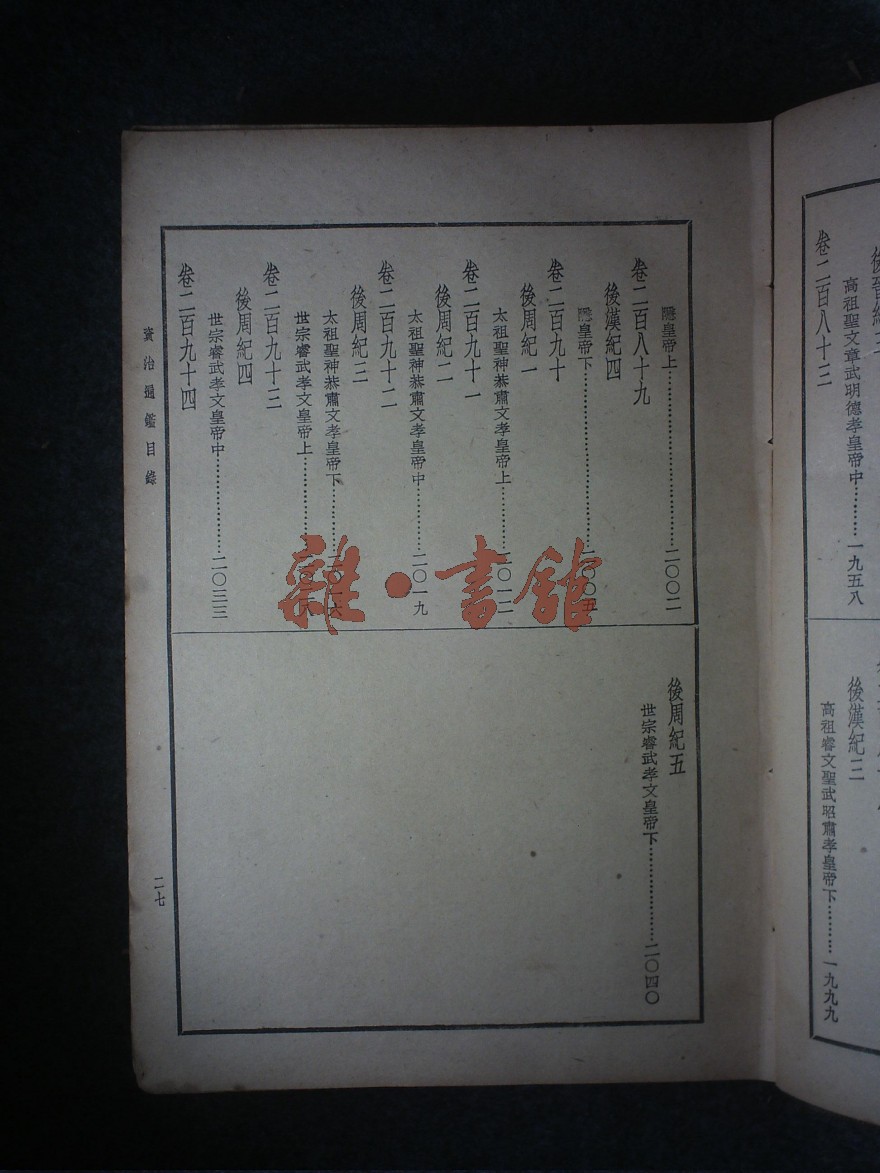 高祖聖文章武明德孝皇帝中…………一九五八
卷二百八十三
後漢紀三
高祖睿文聖武昭肅孝皇帝下…………一九九九
隱皇帝上…………二〇〇二
卷二百八十九
後漢紀四
隱皇帝下…………二〇〇五
卷二百九十
後周紀一
太祖聖神恭肅文孝皇帝上…………二〇一二
卷二百九十一
後周紀二
太祖聖神恭肅文孝皇帝中…………二〇一九
卷二百九十二
後周紀三
太祖聖神恭肅文孝皇帝下…………
世宗睿武孝文皇帝上…………
卷二百九十三
後周紀四
世宗睿武孝文皇帝中…………二〇三三
卷二百九十四
後周紀五
世宗睿武孝文皇帝下…………二〇四〇
資治通鑑目錄
二七
雜·書館